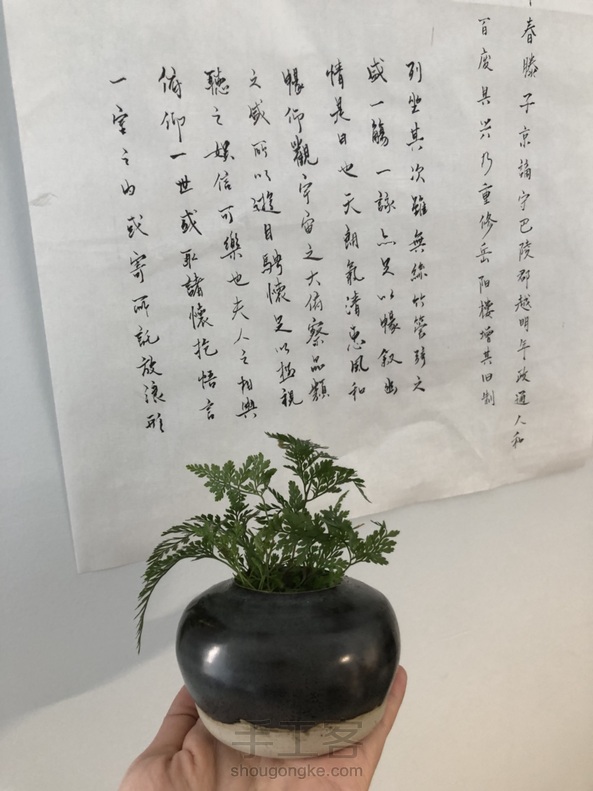 春滕子京謫守巴陵郡越明年政通人和
百廢具兴乃重修岳阳樓增其旧制
列坐其次雖無絲竹管弦之
盛一觴一詠亦足以暢叙幽
情是日也天朗氣清惠風和
暢仰觀宇宙之大俯察品類
之盛所以遊目騁懷足以極視
聽之娱信可樂也夫人之相與
俯仰一世或取諸懷抱悟言
一室之内或寄所託放浪形
手工客
shougongke.com